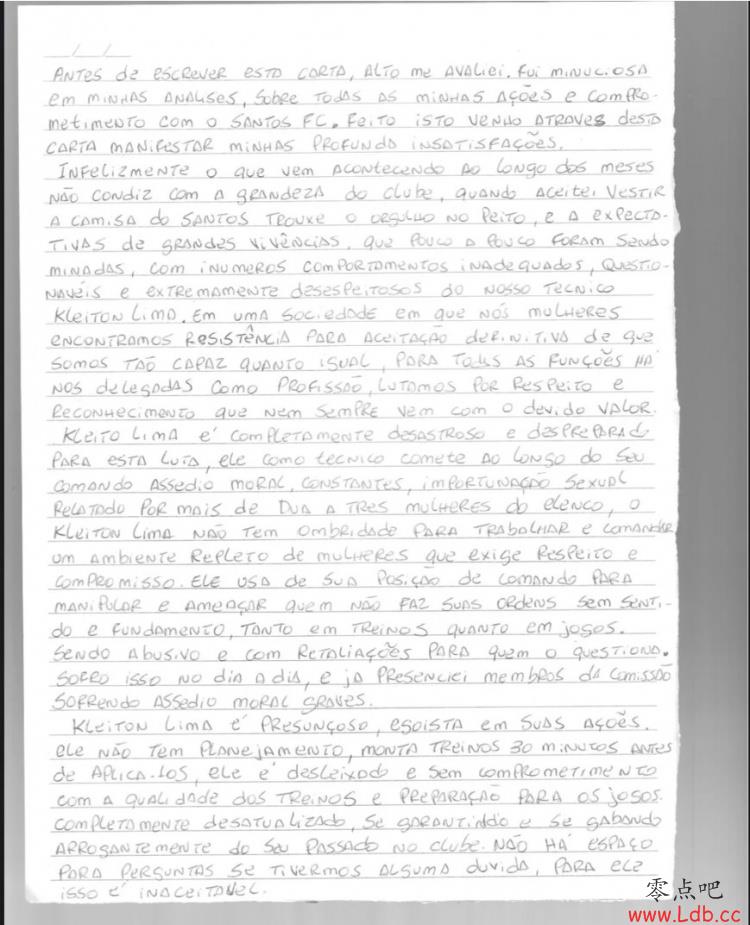 __/__/__
ANTES de escrever esta CARTA, ALTO me AVALIEI. Fui minuciosa
em minhas analises, sobre todas as minhas ações e compro-
metimento com o SANTOS FC. Feito isto venho ATRAVES desta
CARTA manifestar minhas profunda insatisfações.
Infelizmente o que vem acontecendo ao longo dos meses
não condiz com a grandeza do clube, quando aceitei vestir
a camisa do SANTOS trouxe o orgulho no peito, e a expecta-
tivas de grandes vivências, que pouco a pouco foram sendo
minadas, com inumeros comportamentos inadequados, question-
naveis e extremamente desespeitosos do nosso tecnico
Kleiton Lima. Em uma sociedade em que nós mulheres
encontramos resistência para aceitação definitiva de que
somos tão capaz quanto igual, para todas as funções há
nos delegadas como profissão, lutamos por respeito e
reconhecimento que nem sempre vem com o devido valor.
Kleito Lima é completamente desastroso e desprepara do
para esta luta, ele como tecnico comete ao longo do seu
comando assedio moral, constantes, importunação sexual
relatado por mais de dua a tres mulheres do elenco, o
Kleiton Lima não tem ombridade para trabalhar e comandar
um ambiente repleto de mulheres que exige respeito e
compromisso. Ele usa de sua posição de comando para
manipular e ameaçar quem não faz suas ordens sem senti-
do e fundamento, tanto em treinos quanto em jogos.
Sendo abusivo e com retaliações para quem o questiona.
Sofro isso no dia a dia, e ja presenciei membros da comissão
sofrendo assedio moral graves.
Kleiton Lima é presunçoso, egoista em suas ações.
ele não tem planejamento, monta treinos 30 minutos antes
de aplica-los, ele é desleixado e sem comprometimento
com a qualidade dos treinos e preparação para os jogos.
Completamente desatualizado, se garantindo e se gabando
arrogantemente do seu passado no clube. Não há espaço
para perguntas se tivermos alguma duvida, para ele
isso é inaceitavel.
零点吧
www.Ldb.cc